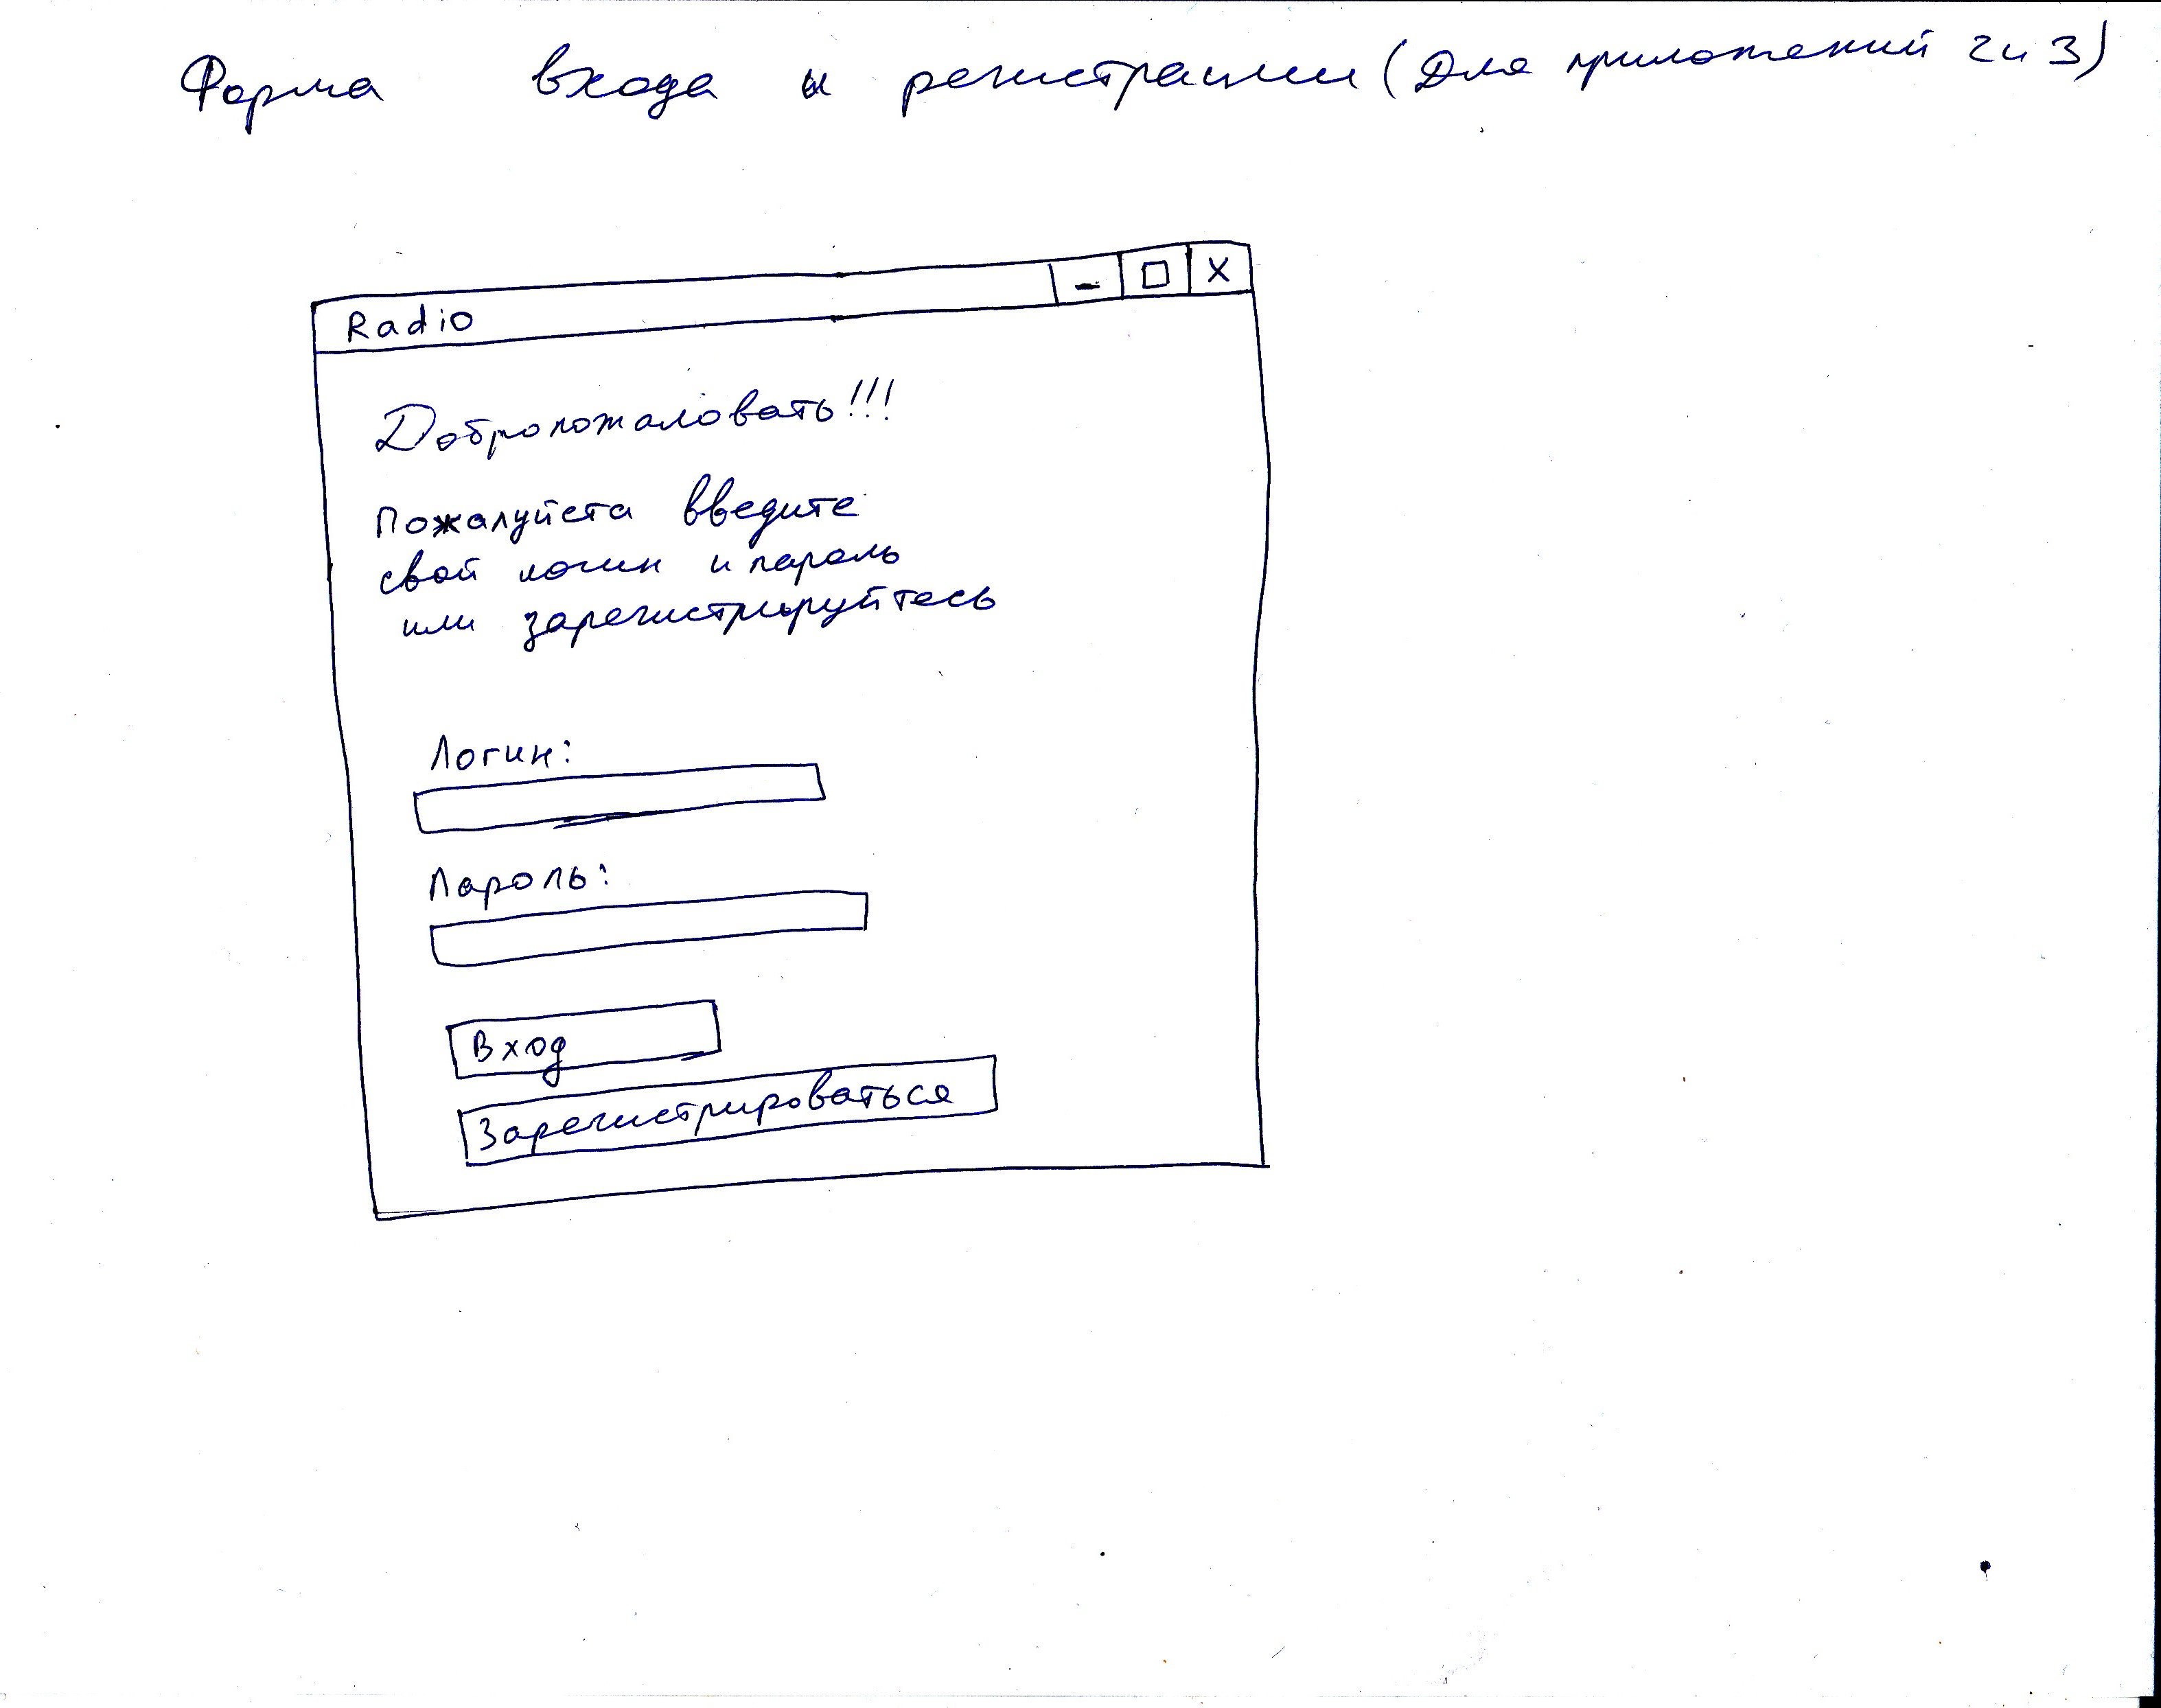 Форма входа и регистрации (Для приложений 2 и 3)
Radio
Добропожаловать!!!
Пожалуйста введите
свой логин и пароль
или зарегистрируйтесь
Логин:
Пароль:
Вход
Зарегистрироваться